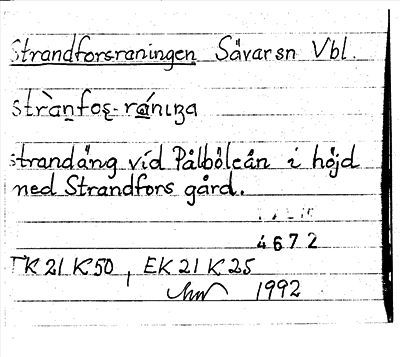 Strandforsraningen Sävarsn Vbl.
strànfos-rániŋa
strandäng vid Pålböleån i höjd
med Strandfors gård.
4672
TK 21 K:50, EK 21 K:25
1992